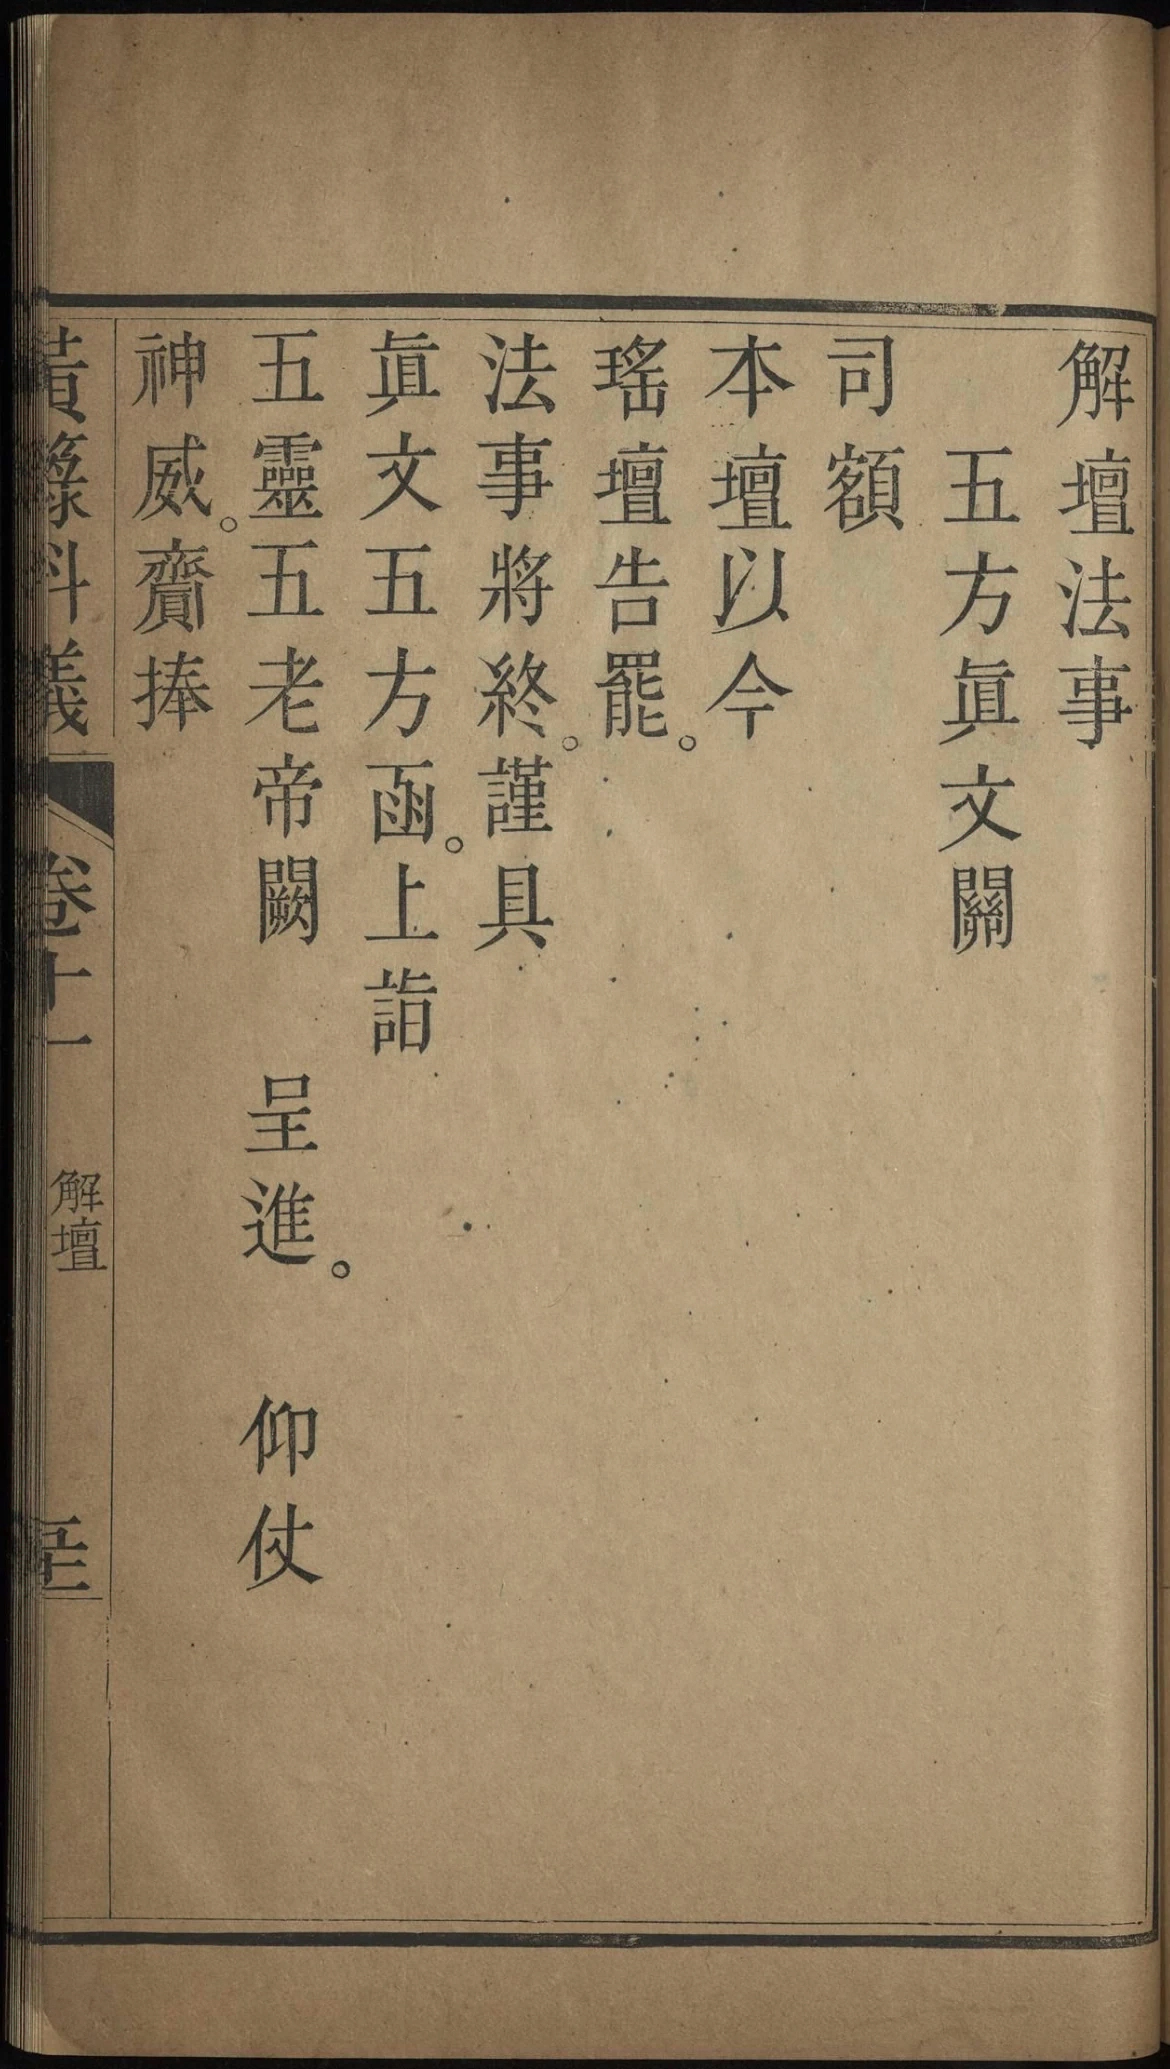 解壇法事
五方眞文關
司額
本壇以今
瑤壇告罷。
法事將終。謹具
眞文五方函。上詣
五靈五老帝闕　呈進。　仰仗
神威。齎捧
黃籙科儀　卷十一　解壇